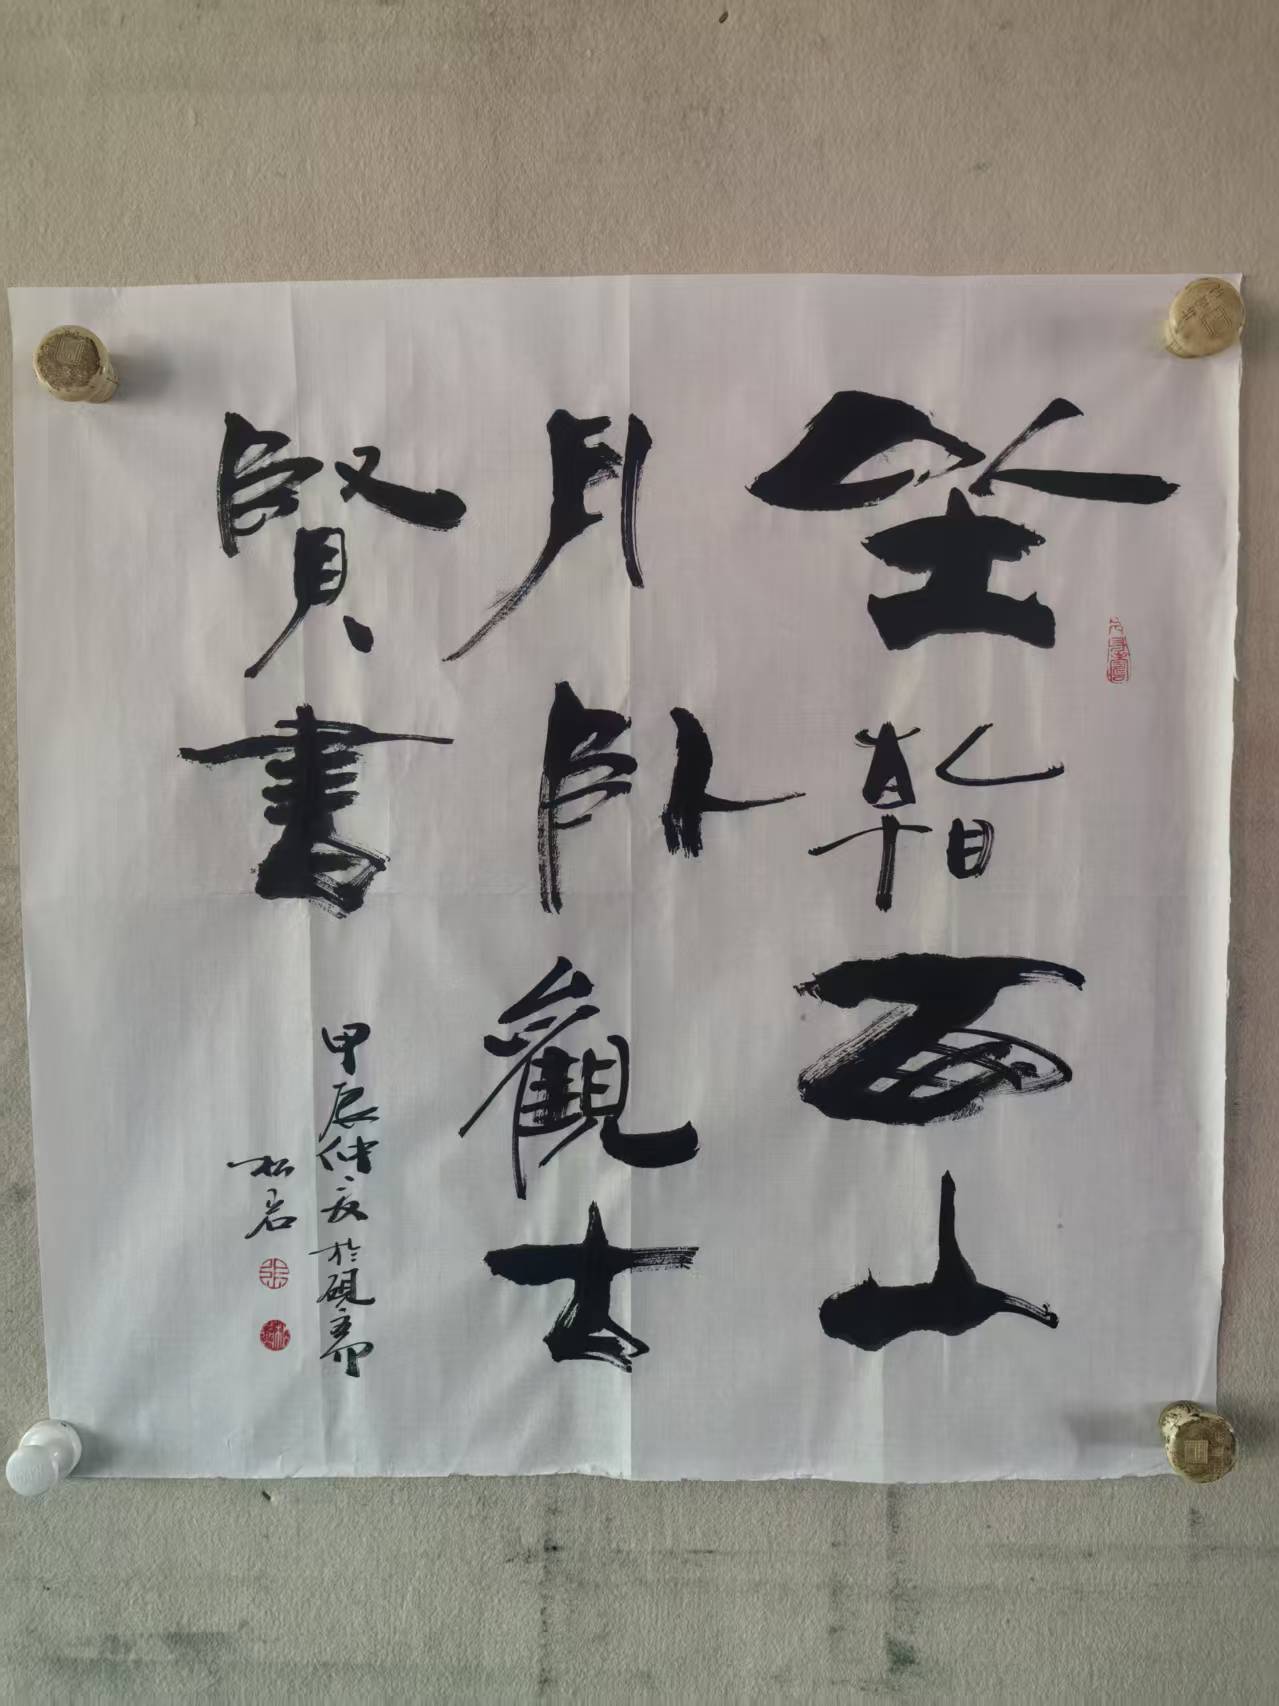 坐看西山
月卧觀古
賢書
甲辰仲夏於硯齋
松岩